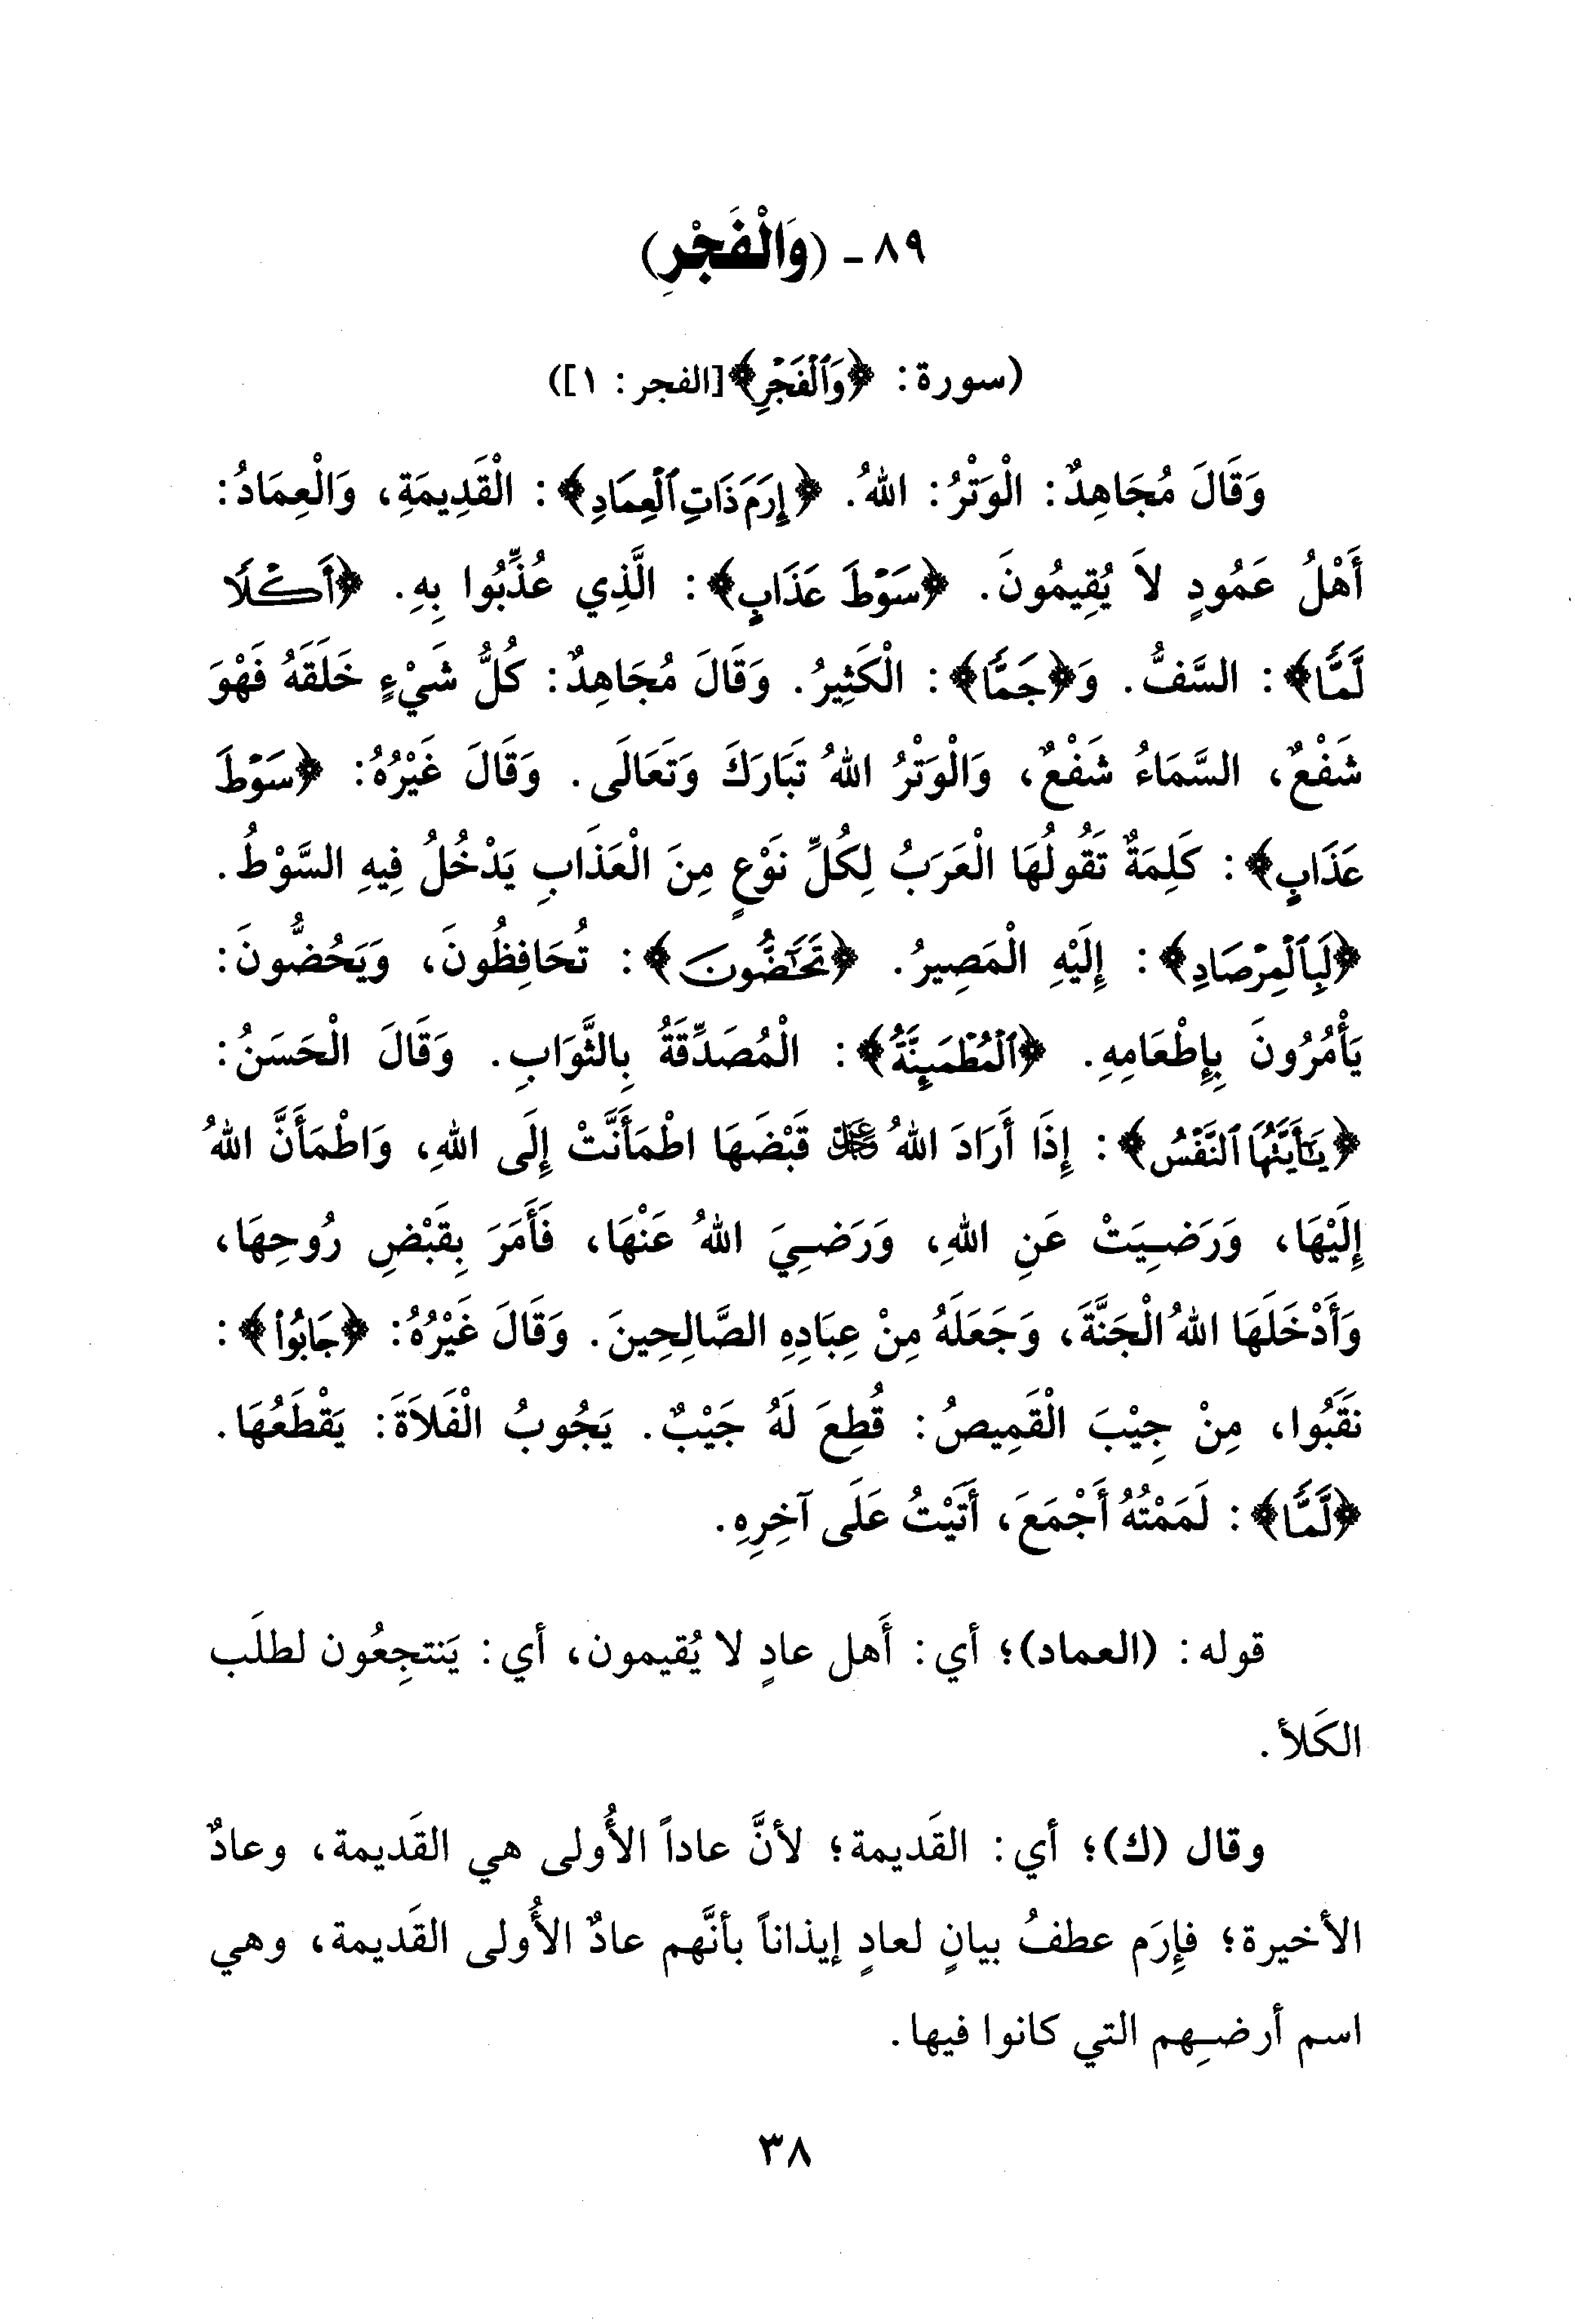 ٨٩ - (وَالْفَجْرِ)
(سورة: ﴿وَٱلْفَجْرِ﴾[الفجر: ١])
وَقَالَ مُجَاهِدٌ: الْوَتْرُ: اللهُ. ﴿إِرَمَ ذَاتِ ٱلْعِمَادِ﴾: الْقَدِيمَةِ، وَالْعِمَادُ:
أَهْلُ عَمُودٍ لاَ يُقِيمُونَ. ﴿سَوْطَ عَذَابٍ﴾: الَّذِي عُذِّبُوا بِهِ. ﴿أَكْلًا
لَّمًّا﴾: السَّفُّ. وَ﴿جَمًّا﴾: الْكَثِيرُ. وَقَالَ مُجَاهِدٌ: كُلُّ شَيْءٍ خَلَقَهُ فَهْوَ
شَفْعٌ، السَّمَاءُ شَفْعٌ، وَالْوَتْرُ اللهُ تَبَارَكَ وَتَعَالَى. وَقَالَ غَيْرُهُ: ﴿سَوْطَ
عَذَابٍ﴾: كَلِمَةٌ تَقُولُهَا الْعَرَبُ لِكُلِّ نَوْعٍ مِنَ الْعَذَابِ يَدْخُلُ فِيهِ السَّوْطُ.
﴿لَبِٱلْمِرْصَادِ﴾: إِلَيْهِ الْمَصِيرُ. ﴿تَحَٰٓضُّونَ﴾: تُحَافِظُونَ، وَيَحُضُّونَ:
يَأْمُرُونَ بِإِطْعَامِهِ. ﴿ٱلْمُطْمَئِنَّةُ﴾: الْمُصَدِّقَةُ بِالثَّوَابِ. وَقَالَ الْحَسَنُ:
﴿يَٰٓأَيَّتُهَا ٱلنَّفْسُ﴾: إِذَا أَرَادَ اللهُ عَزَّ وَجَلَّ قَبْضَهَا اطْمَأَنَّتْ إِلَى اللهِ، وَاطْمَأَنَّ اللهُ
إِلَيْهَا، وَرَضِيَتْ عَنِ اللهِ، وَرَضِيَ اللهُ عَنْهَا، فَأَمَرَ بِقَبْضِ رُوحِهَا،
وَأَدْخَلَهَا اللهُ الْجَنَّةَ، وَجَعَلَهُ مِنْ عِبَادِهِ الصَّالِحِينَ. وَقَالَ غَيْرُهُ: ﴿جَابُوا۟﴾:
نَقَبُوا، مِنْ جِيْبَ الْقَمِيصُ: قُطِعَ لَهُ جَيْبٌ. يَجُوبُ الْفَلاَةَ: يَقْطَعُهَا.
﴿لَّمًّا﴾: لَمَمْتُهُ أَجْمَعَ، أَتَيْتُ عَلَى آخِرِهِ.
قوله: (العماد)؛ أي: أَهل عادٍ لا يُقيمون، أي: يَنتجِعُون لطلَب
الكَلأ.
وقال (ك)؛ أي: القَديمة؛ لأنَّ عاداً الأُولى هي القَديمة، وعادٌ
الأخيرة؛ فإِرَم عطفُ بيانٍ لعادٍ إيذاناً بأنَّهم عادٌ الأُولى القَديمة، وهي
اسم أرضِهم التي كانوا فيها.
٣٨